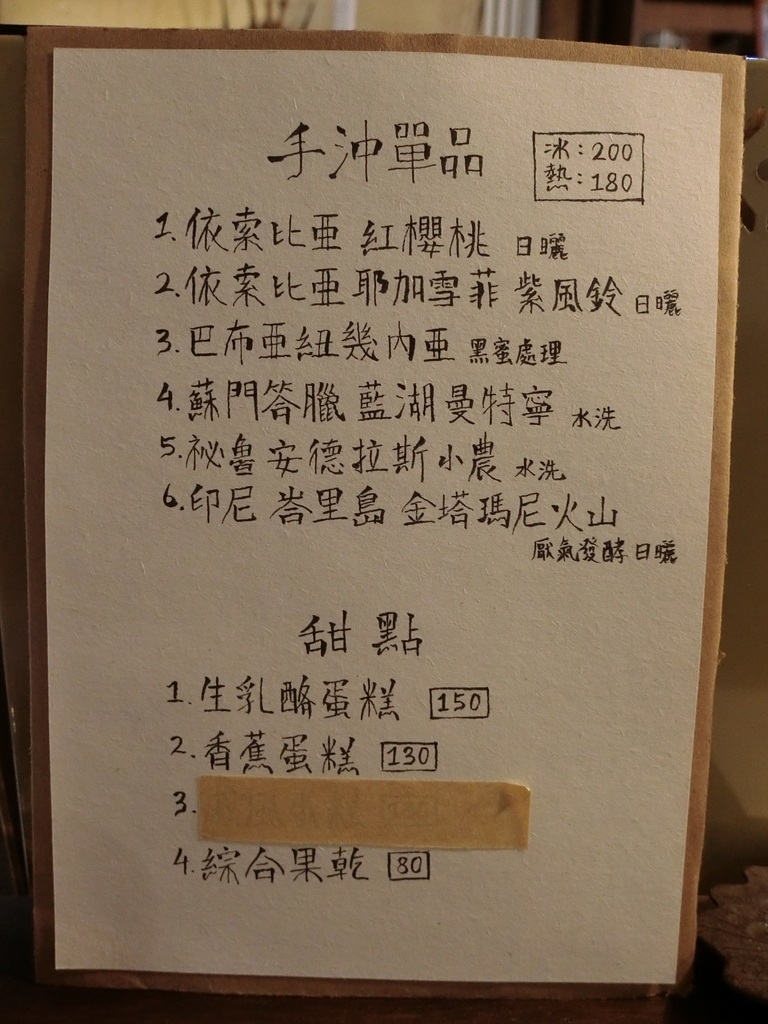 手沖單品
冰：200
熱：180
1. 依索比亞 紅櫻桃 日曬
2. 依索比亞 耶加雪菲 紫風鈴 日曬
3. 巴布亞紐幾內亞 黑蜜處理
4. 蘇門答臘 藍湖曼特寧 水洗
5. 祕魯 安德拉斯小農 水洗
6. 印尼 峇里島 金塔瑪尼火山
厭氣發酵 日曬
甜點
1. 生乳酪蛋糕 150
2. 香蕉蛋糕 130
3.
4. 綜合果乾 80